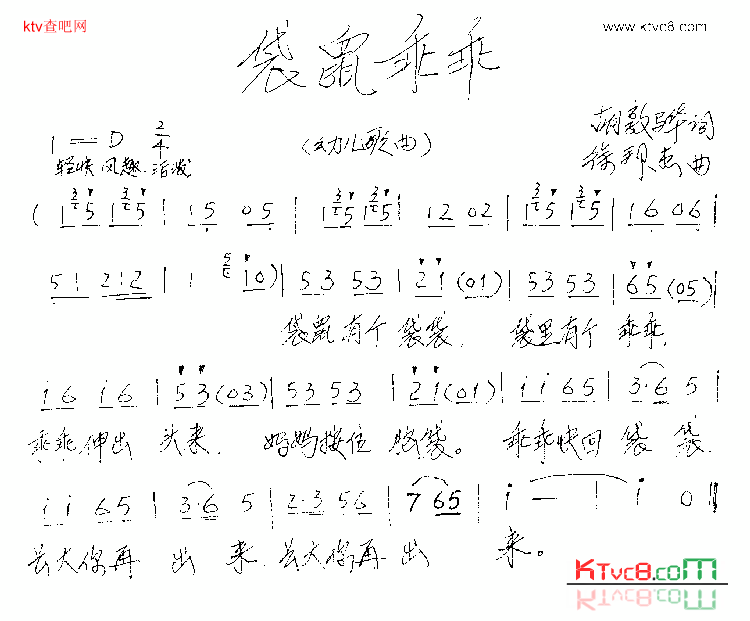 ktv查吧网
www.ktvc8.com
袋鼠乖乖
1=D 2/4
(幼儿歌曲)
胡敦骅词
徐邦杰曲
轻快 风趣.活泼
( 1 5 1 5 | 1 5 0 5 | 1 5 1 5 | 1 2 0 2 | 1 5 1 5 | 1 6 0 6 |
5 1 2 1 2 | 1 i 0 ) | 5 3 5 3 | 2 1 (0 1) | 5 3 5 3 | 6 5 (0 5) |
袋鼠有个袋袋, 袋里有个乖乖,
i 6 i 6 | 5 3 (0 3) | 5 3 5 3 | 2 1 (0 1) | i i 6 5 | 3·6 5 |
乖乖伸出头来, 妈妈按住胶袋。乖乖快回袋袋
i i 6 5 | 3·6 5 | 2·3 5 6 | 7 6 5 | i — | i 0 ‖
长大你再出来.长大你再出来。
KTvc8.com